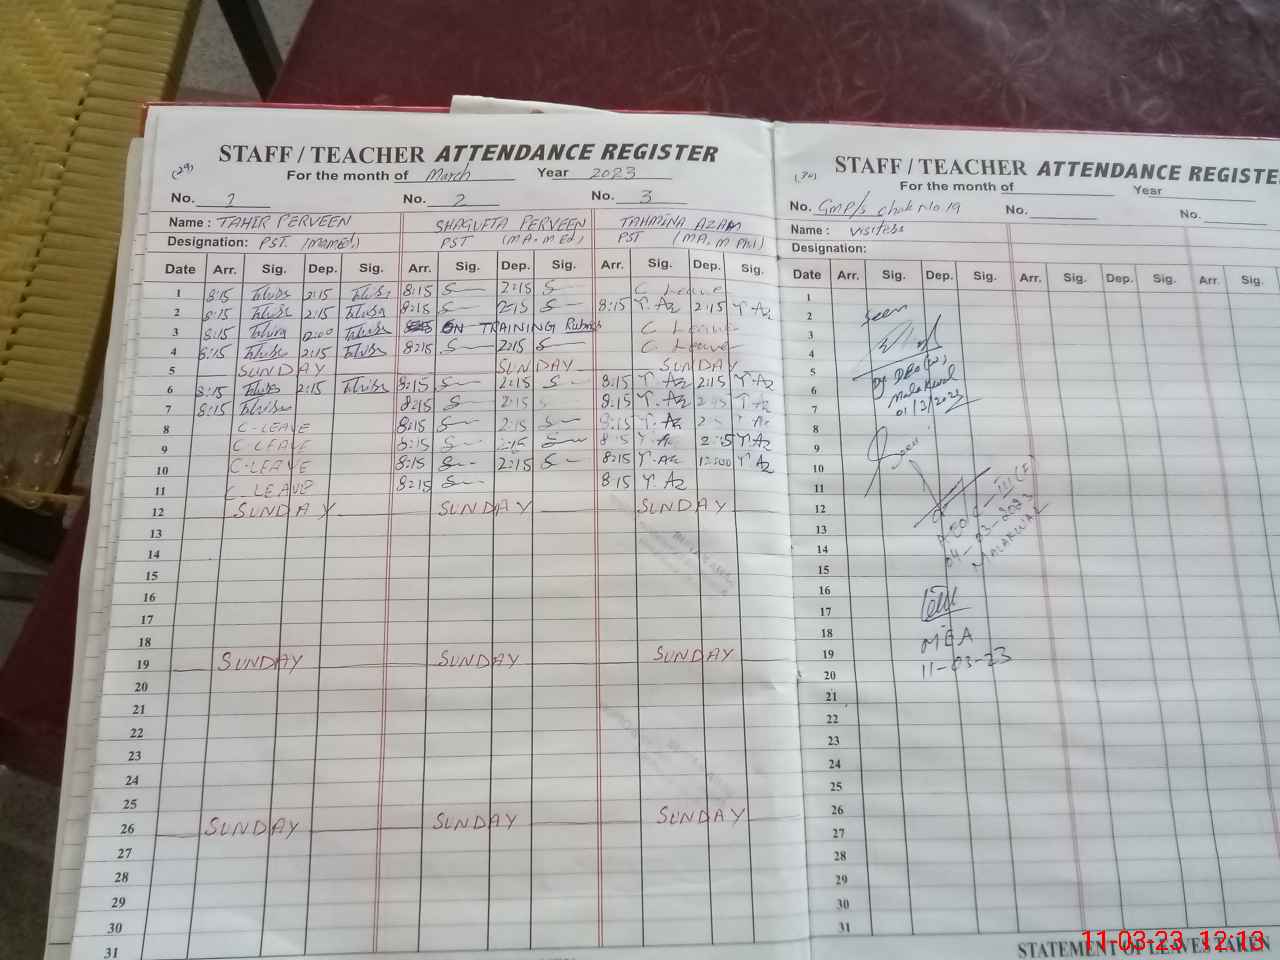 (29)
STAFF / TEACHER ATTENDANCE REGISTER
For the month of March Year 2023
No. 1 No. 2 No. 3
Name : TAHIR PERVEEN SHAGUFTA PERVEEN TAHMINA AZAM
Designation: PST. (MA MEd) PST (MA. M Ed) PST (MA. M Phil)
Date Arr. Sig. Dep. Sig. Arr. Sig. Dep. Sig. Arr. Sig. Dep. Sig.
1 8:15 2:15 8:15 2:15 C Leave
2 8:15 2:15 8:15 2:15 8:15 T. Az 2:15 T Az
3 8:15 12:00 ON TRAINING C Leave
4 8:15 2:15 8:15 2:15 C Leave
5 SUNDAY SUNDAY SUNDAY
6 8:15 2:15 8:15 2:15 8:15 T. Az 2:15 T Az
7 8:15 8:15 2:15 8:15 T. Az 2:15 T. Az
8 C-LEAVE 8:15 2:15 8:15 T. Az 2:15 Az
9 C-LEAVE 8:15 2:15 8:15 T. Az 2:15 T Az
10 C-LEAVE 8:15 2:15 8:15 T. Az 12:00 T Az
11 C. LEAVE 8:15 8:15 T. Az
12 SUNDAY SUNDAY SUNDAY
13
14
15
16
17
18
19 SUNDAY SUNDAY SUNDAY
20
21
22
23
24
25
26 SUNDAY SUNDAY SUNDAY
27
28
29
30
31
(30)
STAFF / TEACHER ATTENDANCE REGISTE
For the month of Year
No. GMP/s chak No. 19 No. No.
Name : visiters
Designation:
Date Arr. Sig. Dep. Sig. Arr. Sig. Dep. Sig. Arr. Sig.
1
2 Seen
3
4
5
6 Malakwal
7 01/3/2023
8
9 Seen
10
11
12
13
14 04-03-2023
15 MALAKWAL
16
17
18 MEA
19 11-03-23
20
21
22
23
24
25
26
27
28
29
30
31
STATEMENT OF LEAVES TAKEN
11-03-23 12:13